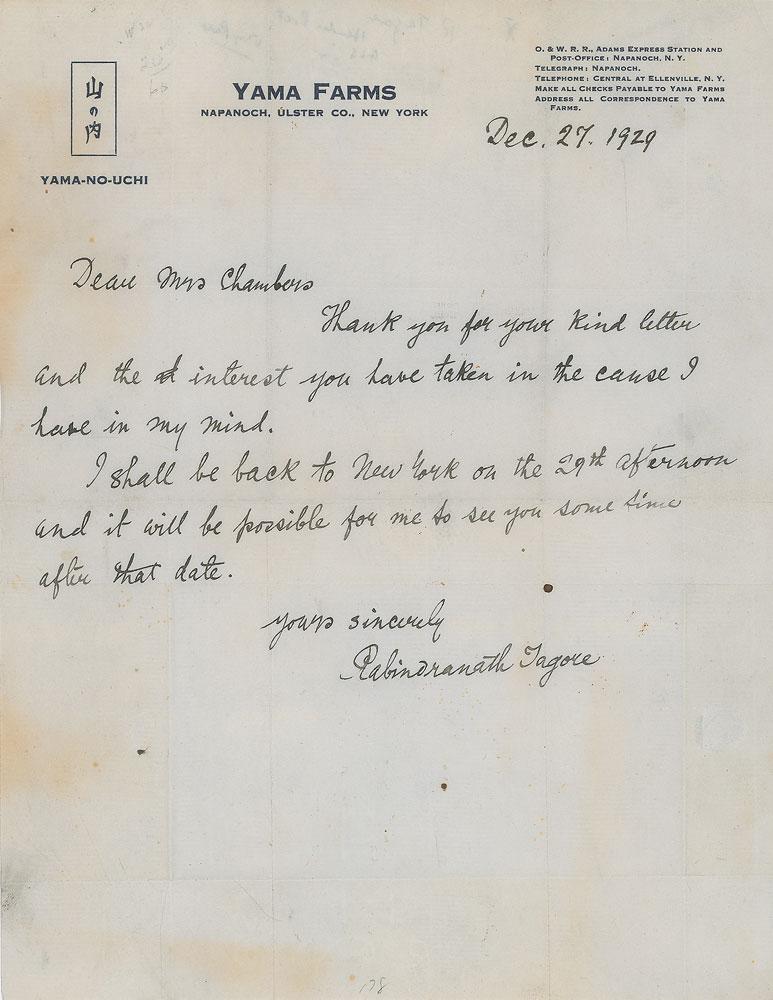 O. & W. R. R., Adams Express Station and
Post-Office: Napanoch, N. Y.
Telegraph: Napanoch.
Telephone: Central at Ellenville, N. Y.
Make all Checks Payable to Yama Farms
Address all Correspondence to Yama
Farms.
山の内
YAMA-NO-UCHI
Yama Farms
Napanoch, Ulster Co., New York
Dec. 27. 1929
Dear Mrs Chambers
Thank you for your kind letter
and the interest you have taken in the cause I
have in my mind.
I shall be back to New York on the 29th afternoon
and it will be possible for me to see you some time
after that date.
yours sincerely
Rabindranath Tagore
178